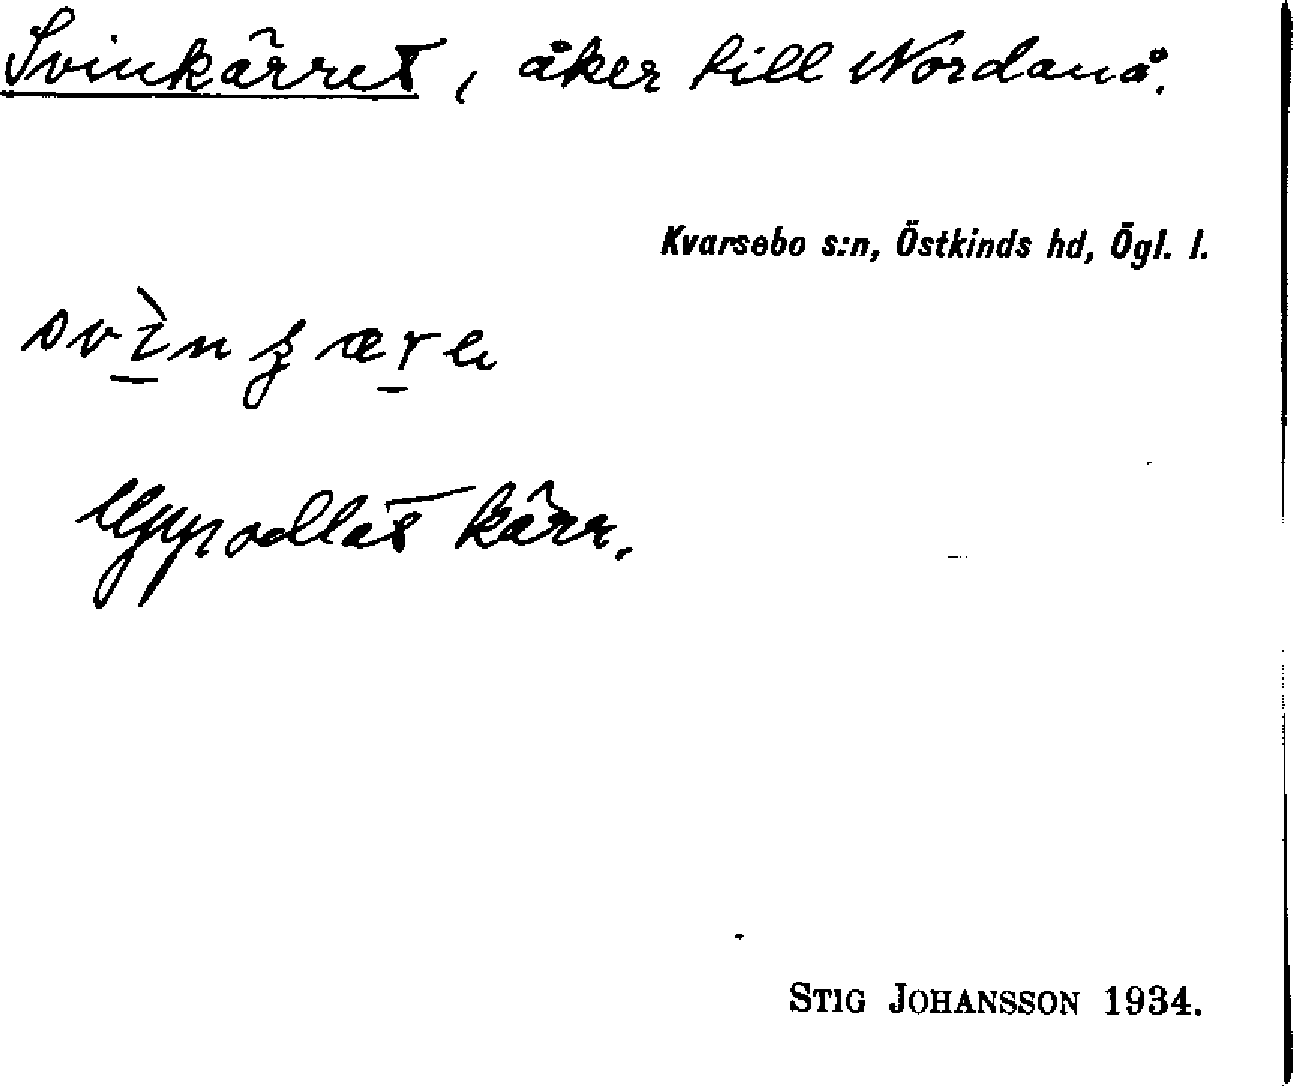 Svinkärret, åker till Nordanå.
Kvarsebo s:n, Östkinds hd, Ögl. l.
Uppodlat kärr.
STIG JOHANSSON 1934.